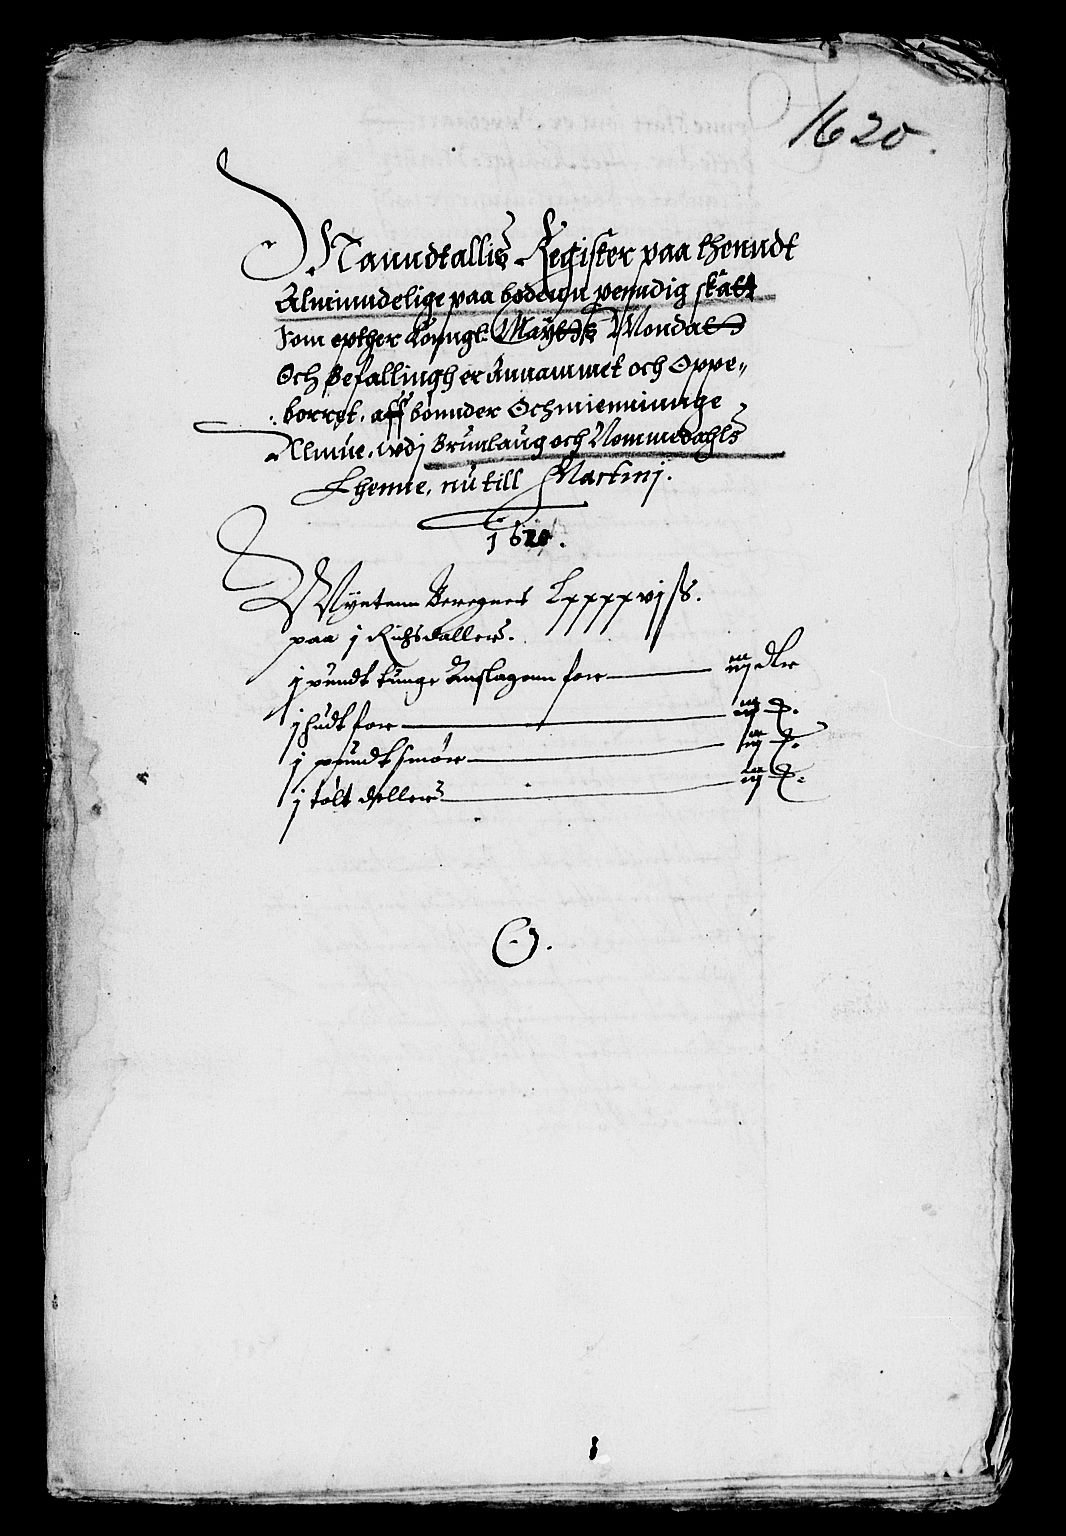 1620.
Manndtallis Register paa thenndt
Alminndelige paa bodenn penndig skatt
Som epther Konngl: Maytts Mondats
Och Befallingh er Annammet och Oppe„
borret, aff bønnder Och mienninge
Almue, wdj Brunlaug och Nommedahls
Lhenne, nu till Martinj.
1620.
Myntenn Beregnes Lxxxxvj ß.
paa j Richsdallers.
j pundt tunge Anslagenn for — iij dlr
j hudt for — iij d.
j pundt smør — iij d.
j tolt deller — iij d.
1